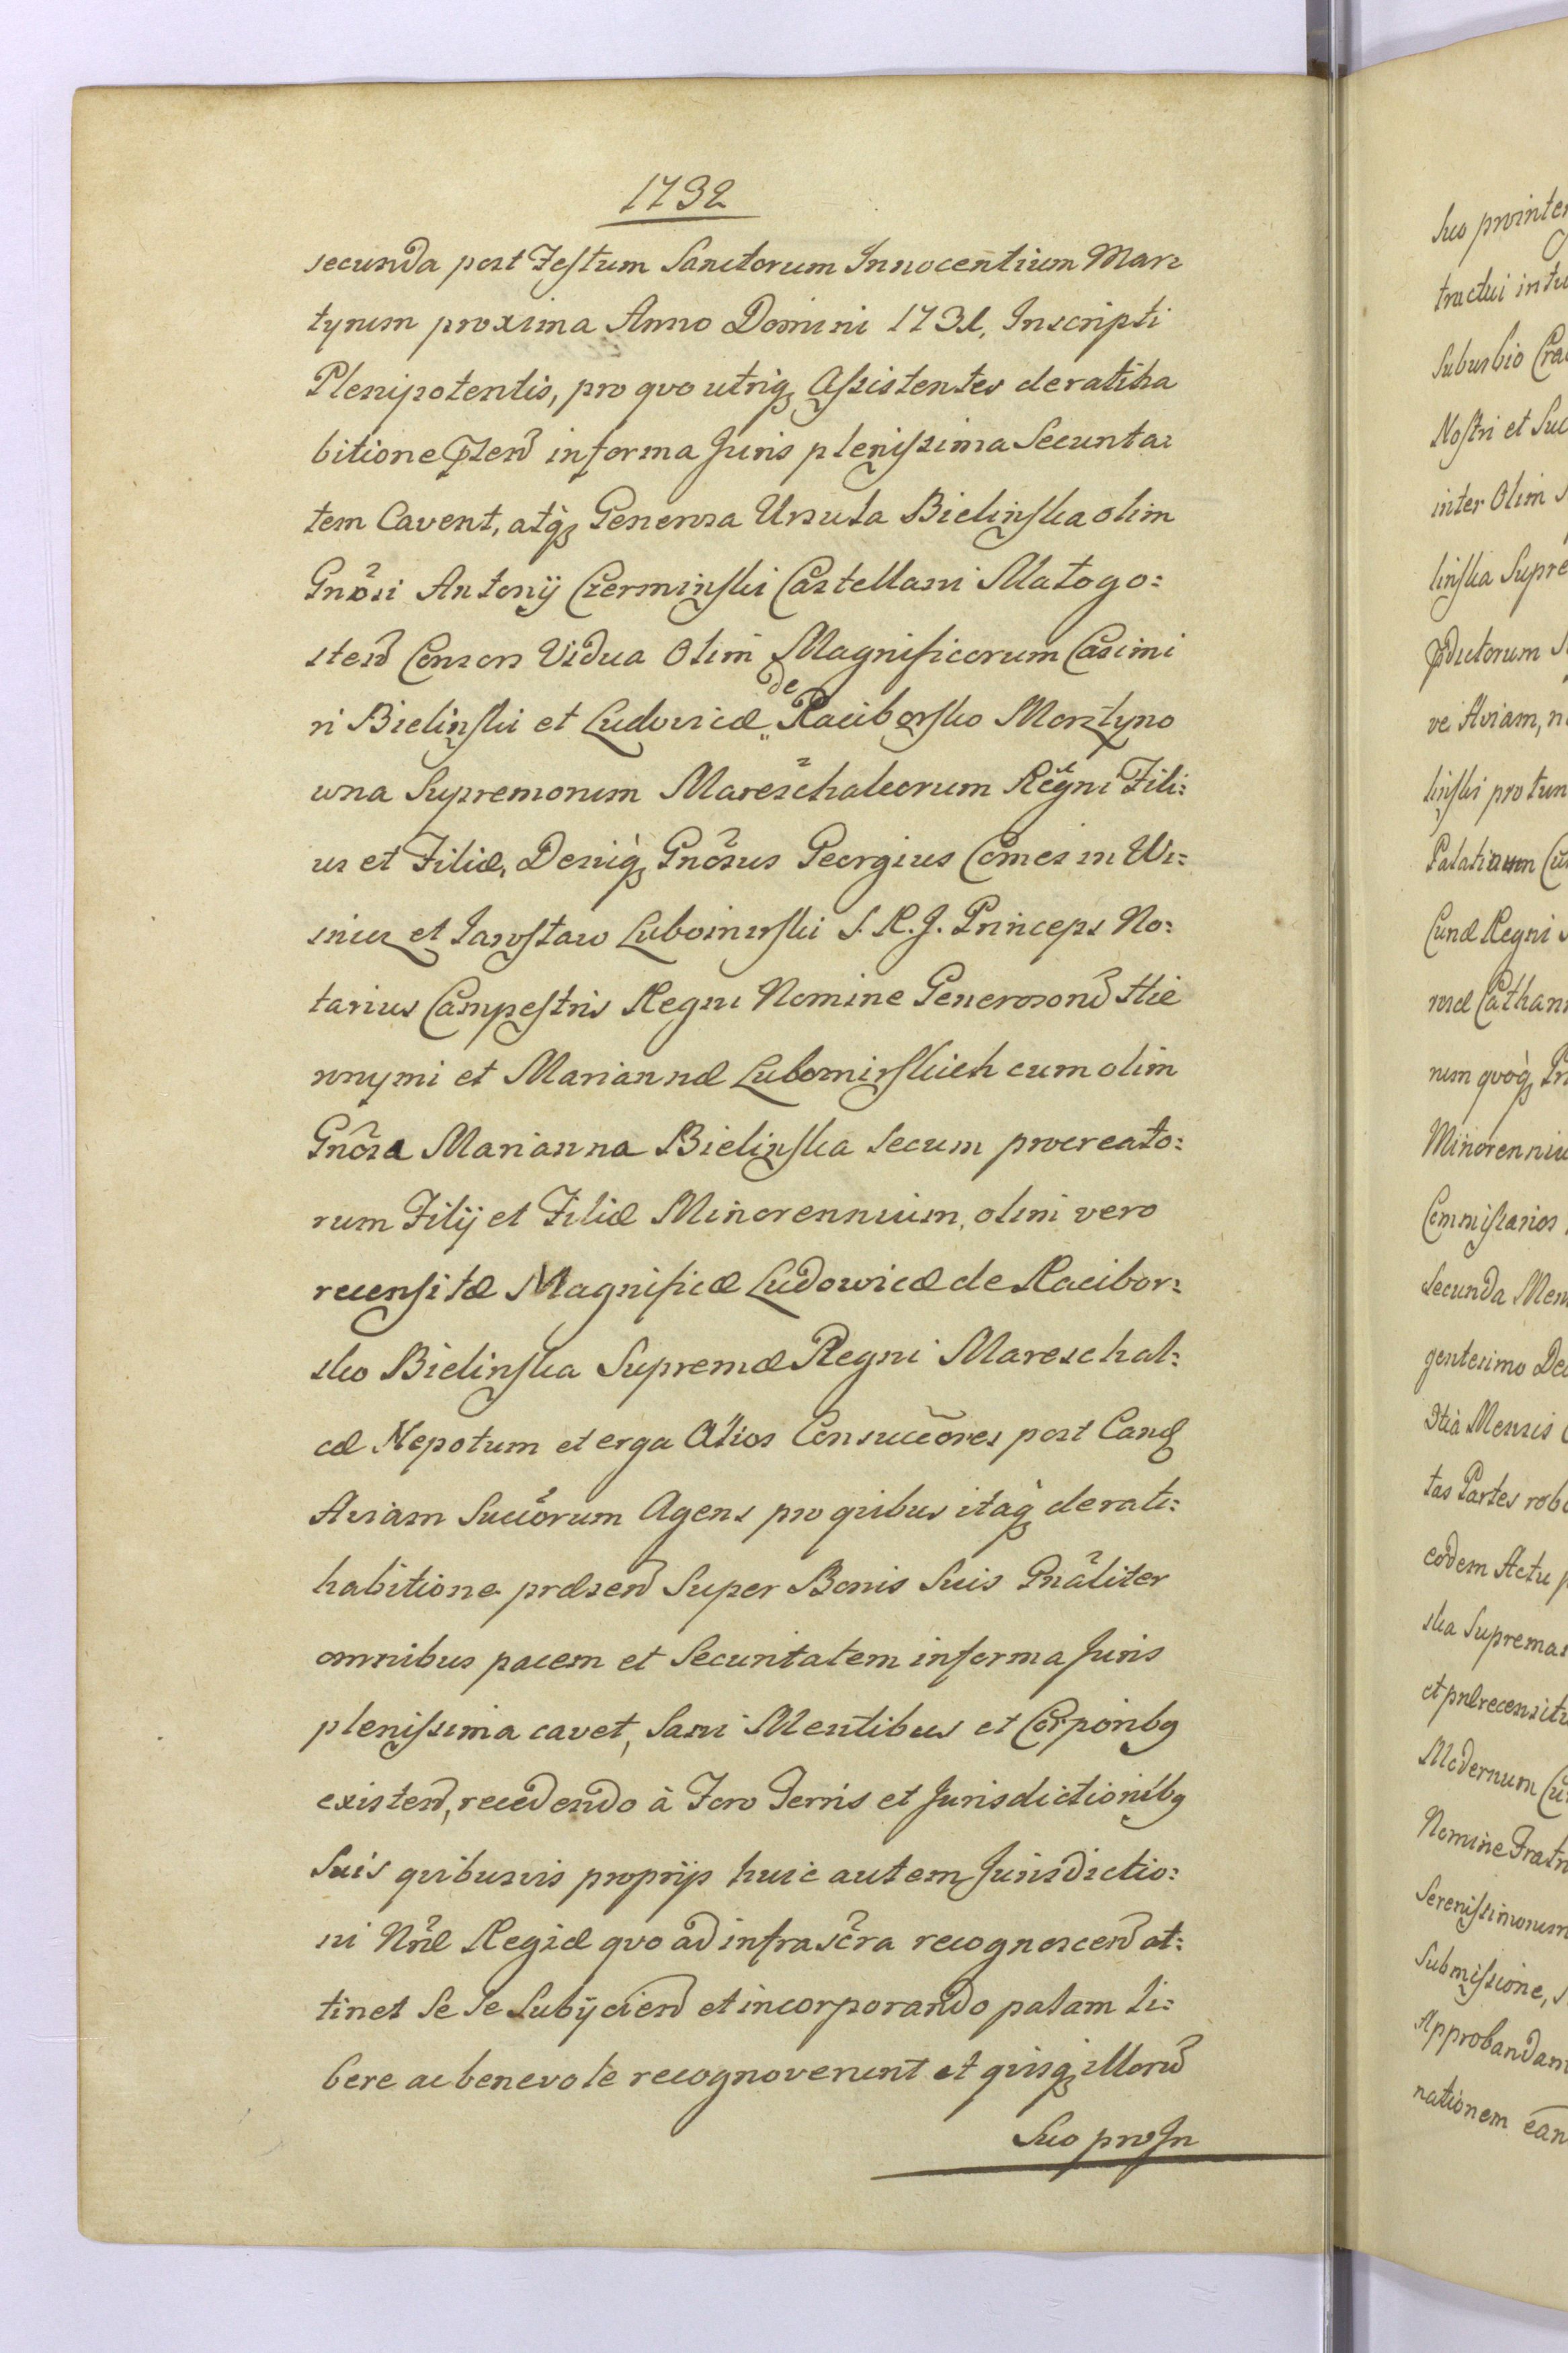 1732
secunda post Festum Sanctorum Innocentium Mar=
tyrum proxima Anno Domini 1731, Inscripti
Plenipotentis, pro quo utriq3 Assistentes de ratiha
bitione in forma Juris plenissima Securita=
tem Cavent, atq3 Generosa Ursula Bielinska olim
Gnõsi Antonij Czerminski Castellani Małogo=
sten Consors Vidua Olim Magnificorum Casimi
ri Bielinski et Ludovicæ de Raciborsko Morsztyno
wna Supremorum Mareschalcorum Regni Fili=
us et Filiæ, Deniq3 Gnõsus Georgius Comes in Wi=
snicz et Jarosław Lubomirski S. R. J. Princeps No=
tarius Campestris Regni Nomine Generosorũ Hie
ronymi et Mariannæ Lubomirskich cum olim
Gnõsa Marianna Bielinska secum procreato=
rum Filij et Filiæ Minorennium, olim vero
recensitæ Magnificæ Ludowicæ de Racibor=
sko Bielinska Supremæ Regni Mareschal=
cæ Nepotum et erga Alios Consuccõres post
Aviam Succõrum Agens pro quibus itaq3 de rati=
habitione præsen Super Bonis Suis Gnãliter
omnibus pacem et Securitatem in forma Juris
plenissima cavet, Sani Mentibus et Corporibg
existen, recedendo à Foro Terris et Jurisdictionibg
Suis quibusvis proprijs huic autem Jurisdictio=
ni Nræ Regiæ quo ad infrascra recognoscen at=
tinet Se Se Subijcien et incorporando palam li=
bere ac benevole recognoverunt et quisq3 illorũ
Suo pro In

Suo prointer
tractui
Suburbio Cra
Nostri et Suc
inter Olim
linska Supre
ductorum
ve Aviam,
linski pro tun
Palatinum
Cunæ Regni
rosæ Cathari
rum quoq3
Minorenniu
Commissarios
Secunda Men
gentesimo De
Mensis
tas Partes robo
eodem Actu
ska Suprema
et recensit
Modernum
Nomine Fratr
Serenissimorum
Submissione,
Approbandam
nationem